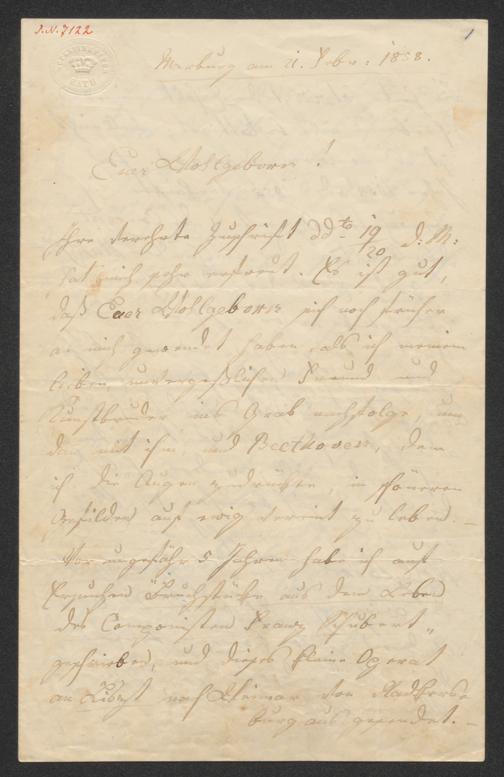 J.N. 7122
1
BATH
Marburg am 21. Febr: 1858.
Euer Wohlgeboren!
Ihre verehrte Zuschrift ddto 19/20 d: M:
hat mich sehr erfreut. Es ist gut,
daß Euer Wohlgeboren sich noch früher
an mich gewendet haben, als ich meinem
lieben unvergeßlichen Freund und
Kunstbruder ins Grab nachfolge, um
dann mit ihm, und Beethoven, dem
ich die Augen zudrückte, in schöneren
Gefilden auf ewig vereint zu leben. –
Vor ungefähr 5 Jahren habe ich auf
Ersuchen Bruchstücke aus dem Leben
des Componisten Franz Schubert
geschrieben, und dieses kleine Operat
an Liszt nach Weimar von Radkers-
burg aus gesendet. –